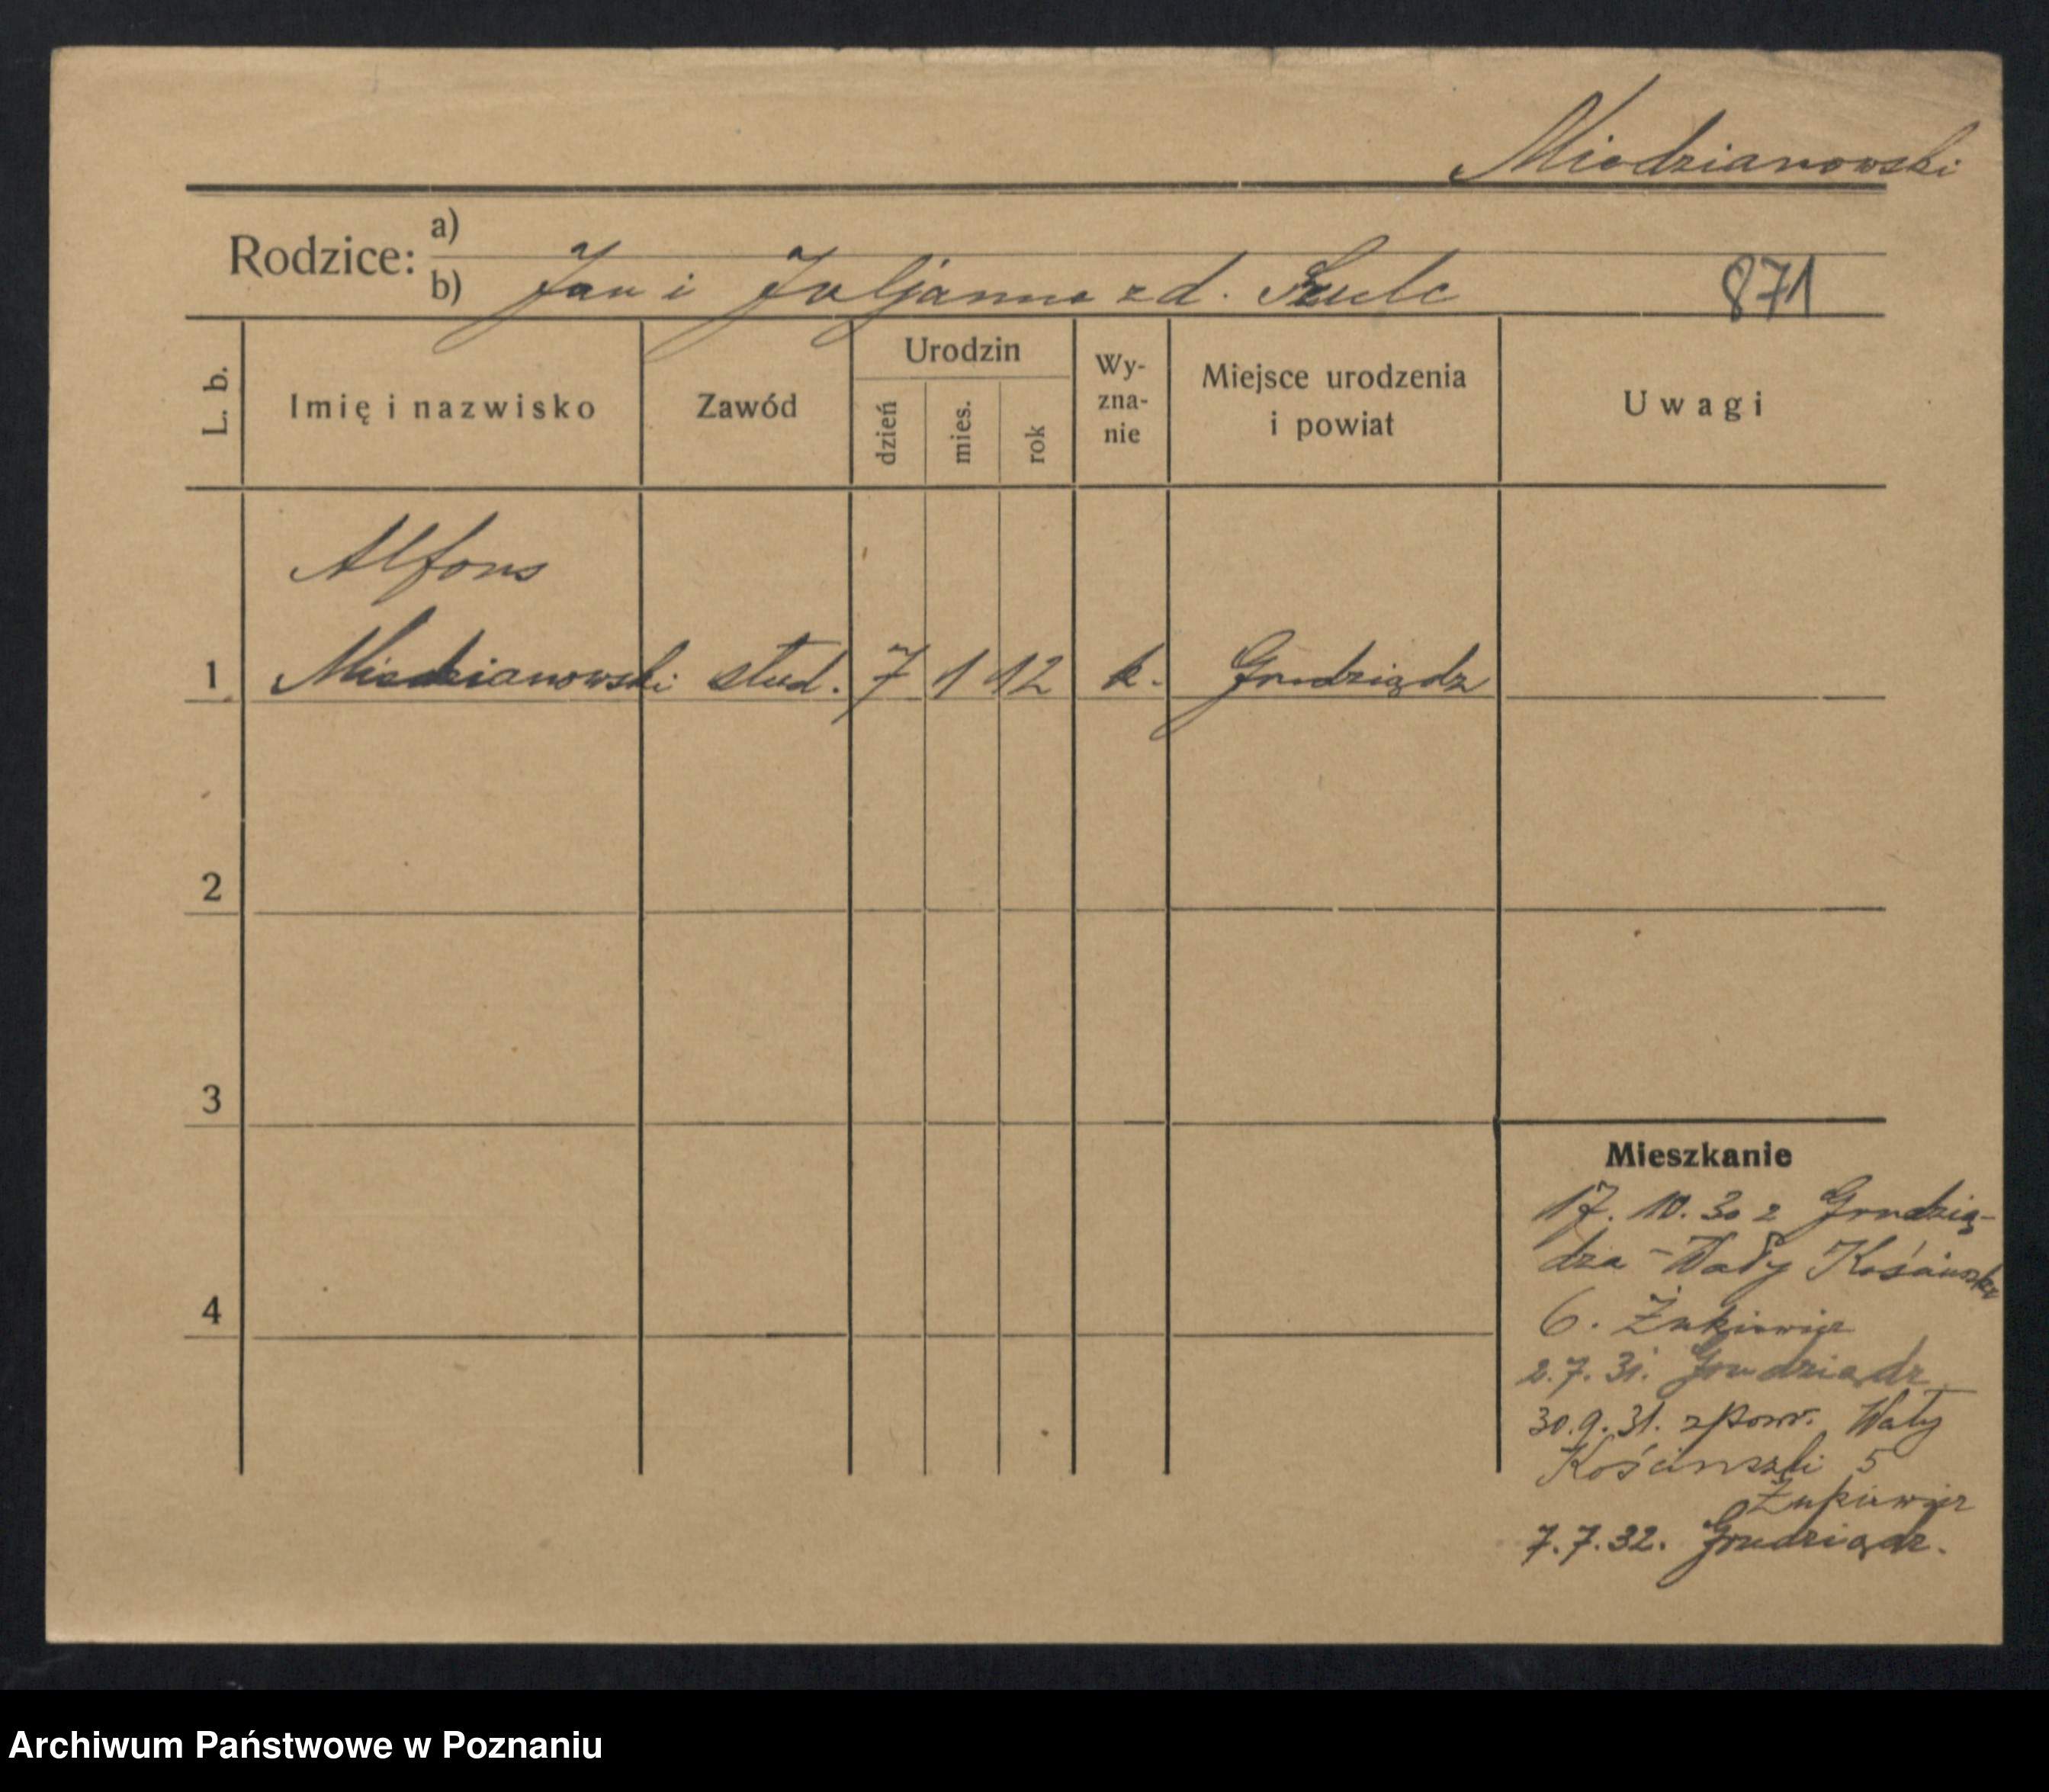 Miedzianowski
Rodzice: a)
b) Jan i Juljanna z d. Szulc 871
L. b. Imię i nazwisko Zawód Urodzin dzień mies. rok Wy-zna-nie Miejsce urodzenia i powiat Uwagi
Alfons
1 Miedzianowski stud. 7 1 12 k. Grudziądz
2
3
Mieszkanie
17. 10. 30 z Grudzią-
dza - Wały Kościuszki
4
6. Żukiewicz
2.7.31. Grudziądz
30.9.31. zpow. Wały
Kościuszki 5
Żukiewicz
7.7.32. Grudziądz.
Archiwum Państwowe w Poznaniu